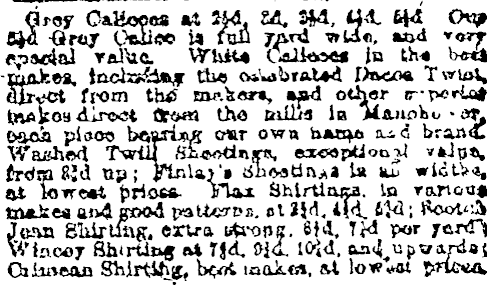 Grey Calicoes at 2½d, 3d, 3½d, 4½d, 5½d Our
5½d Grey Calico is full yard wide, and very
special value. White Calicoes in the best
makes, including the celebrated Dacca Twist,
direct from the makers, and other superior
makes direct from the mills in Manchester,
each piece bearing our own name and brand.
Washed Twill Sheetings, exceptional value,
from up; Finlay's Sheetings in all widths,
at lowest prices. Flax Shirtings, in various
makes and good patterns, at 4½d, Scotch
Jean Shirting, extra strong, per yard
Wincey Shirting at and upwards;
Crimean Shirting, best makes, at lowest prices.